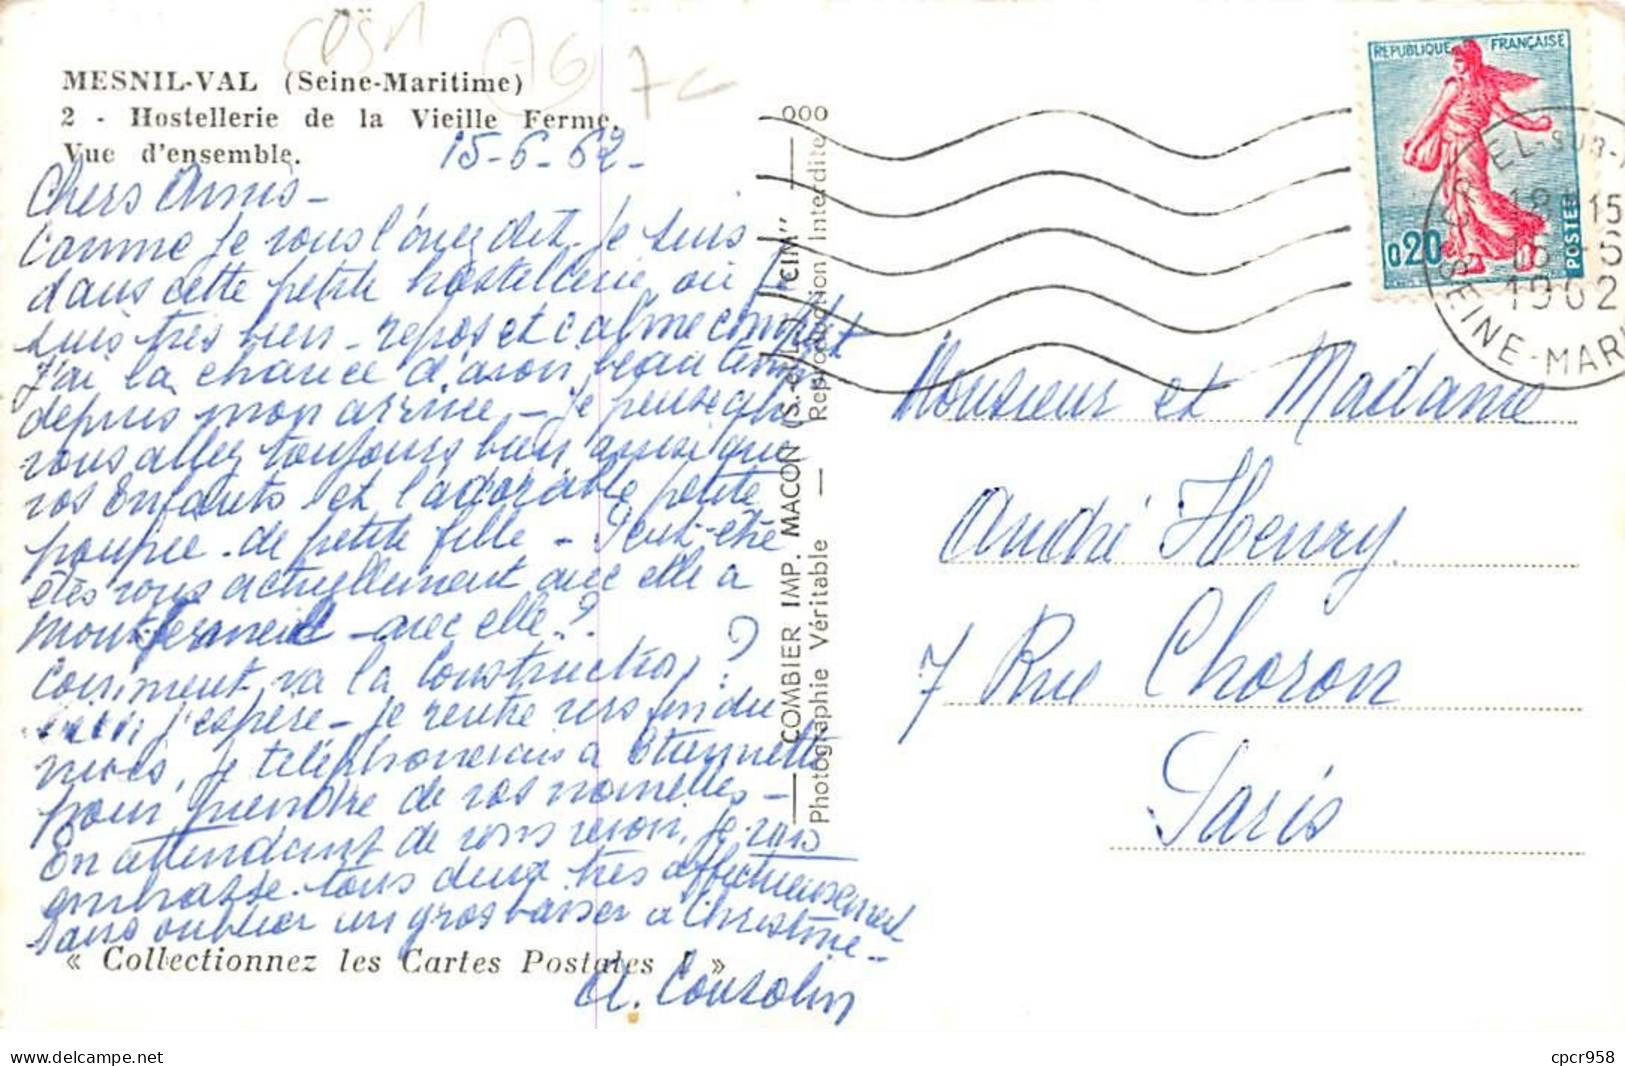 MESNIL-VAL (Seine-Maritime)
2 - Hostellerie de la Vieille Ferme.
Vue d'ensemble.
15-6-62-
Chers Amis -
Comme je vous l'avez dit. Je suis
dans cette petite hostellerie où je
suis très bien - repos et calme complet
J'ai la chance d'avoir beau temps
depuis mon arrivée - Je pense que
vous allez toujours bien ainsi que
vos Enfants et l'adorable petite
poupée de petite fille - Peut-être
êtes vous actuellement avec elle à
Montfermeil - avec elle ?
Comment va la Construction ?
bien j'espère - je rentre vers fin du
mois, je téléphonerais à
pour prendre de vos nouvelles -
En attendant de vous revoir, je vous
embrasse tous deux très affectueusement
Sans oublier un gros baiser à Christine -
A.
« Collectionnez les Cartes Postales ! »
COMBIER IMP. MACON (S.-&-L.) "CIM"
Photographie Véritable — Reproduction Interdite
000
REPUBLIQUE FRANÇAISE
0,20
POSTES
EL-SUR-
1962
SEINE-MAR
Monsieur et Madame
André Henry
7 Rue Choron
Paris
AG
7c
cpcr958
https://www.delcampe.net